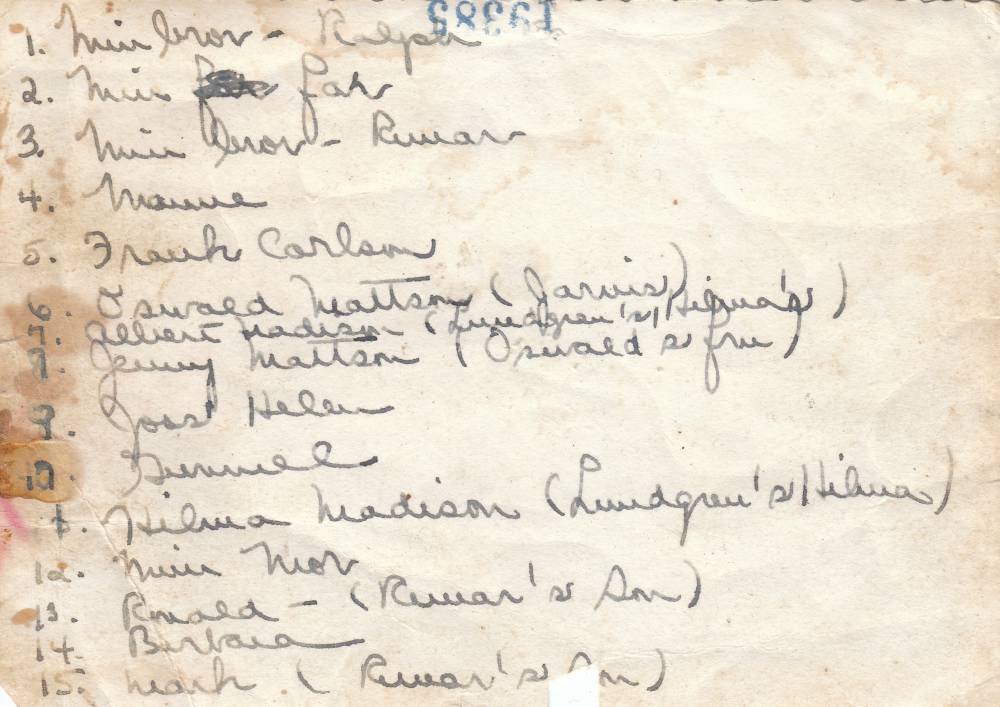 19385
1. Min bror - Ralph
2. Min far
3. Min bror - Reuar
4. Manne
5. Frank Carlson
6. Oswald Mattson (Jarvis)
7. Albert Madison (Lundgren's Hilma's)
7. Jenny Mattson (Oswald's fru)
9. Joos' Helen
10. Gunnel
1. Hilma Madison (Lundgren's Hilma)
12. Min Mor
13. Ronald - (Reuar's Son)
14. Barbara
15. Mark (Reuar's Son)